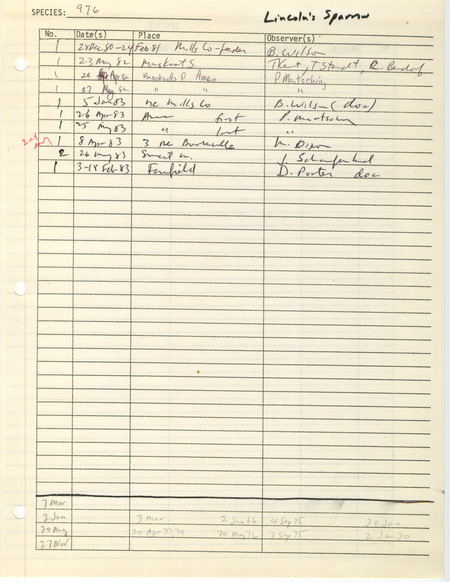 SPECIES: 976 Lincoln's Sparrow
No. Date(s) Place Observer(s)
1 28 Dec 80-24 Feb 81 Mills Co-feeder B. Wilson
1 23 May 82 S. T Kent, T Staudt, R.
1 Ames P Martsching
1 27 May 82 " " "
1 5 Jan 83 Mills Co B. Wilson (doc)
1 26 Apr 83 Ames first P. Martsching
1 25 May 83 " last "
1 8 Apr 83 3 M. Dixon
2 26 May 83 J.
1 3-18 Feb 83 Fairfield D. Porter doc
7 Mar
2 Jun 3 Mar 2 Jun 66 4 Sep 75 30 Jan
20 Aug 20 Apr 77,79 30 May 76 7 Sep 75 2 Jan 70
27 Nov